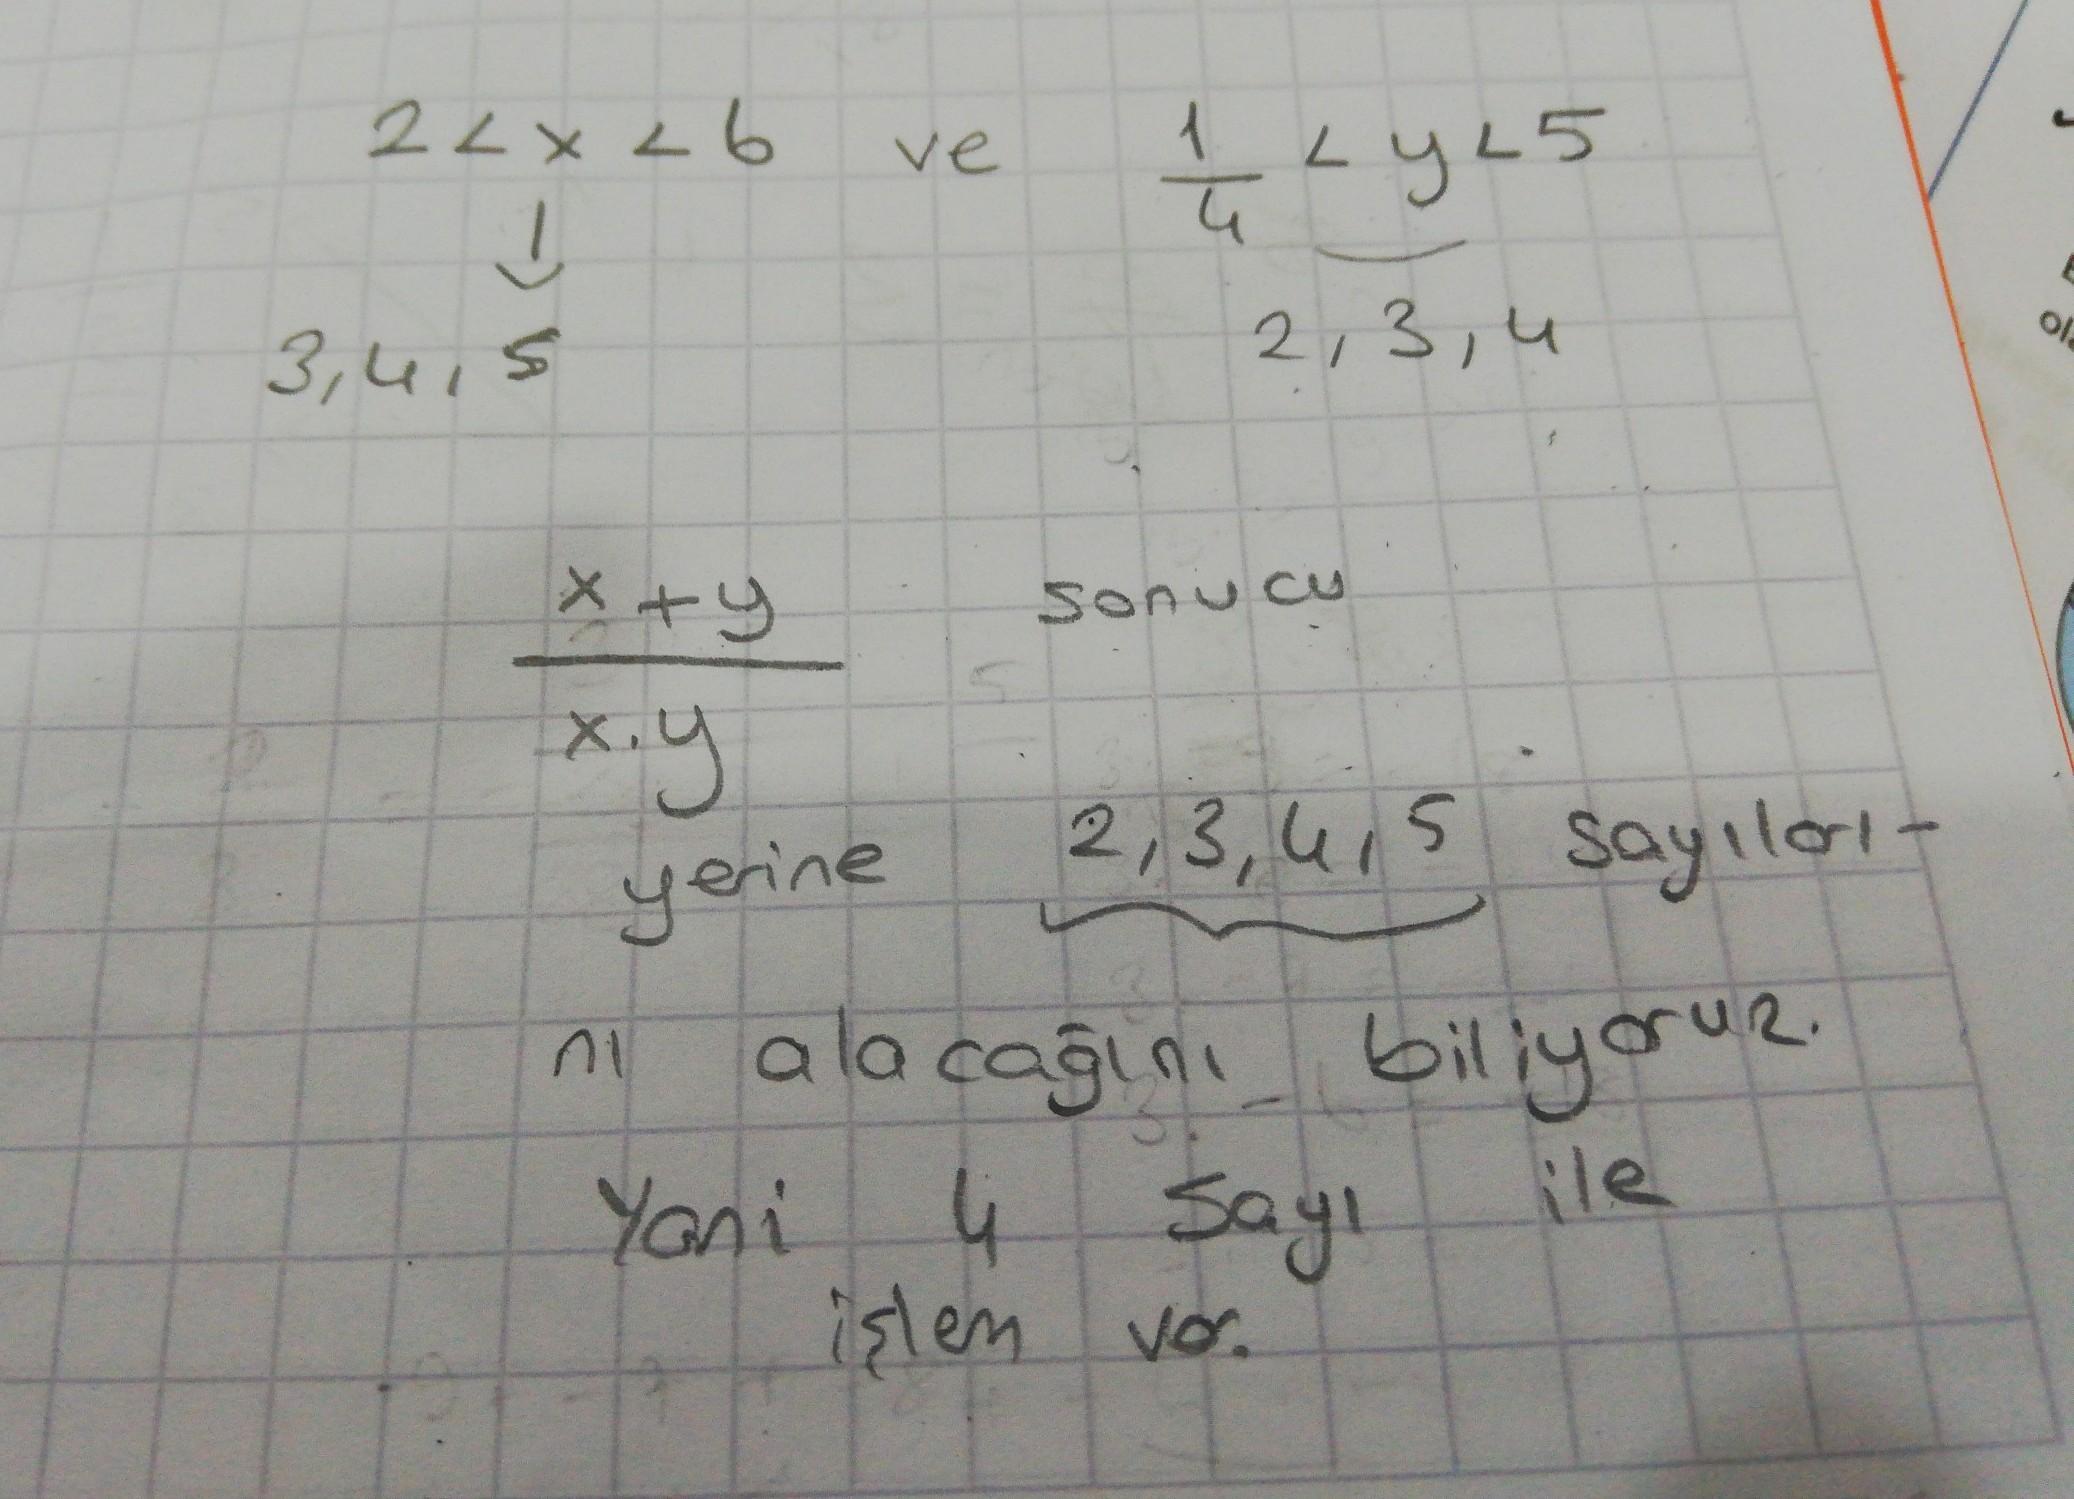 2 < x < 6 ve 1/4 < y < 5
↓
3, 4, 5
2, 3, 4
x + y / x . y sonucu
yerine 2, 3, 4, 5 sayıları-
nı alacağını biliyoruz.
Yani 4 sayı ile
işlem var.